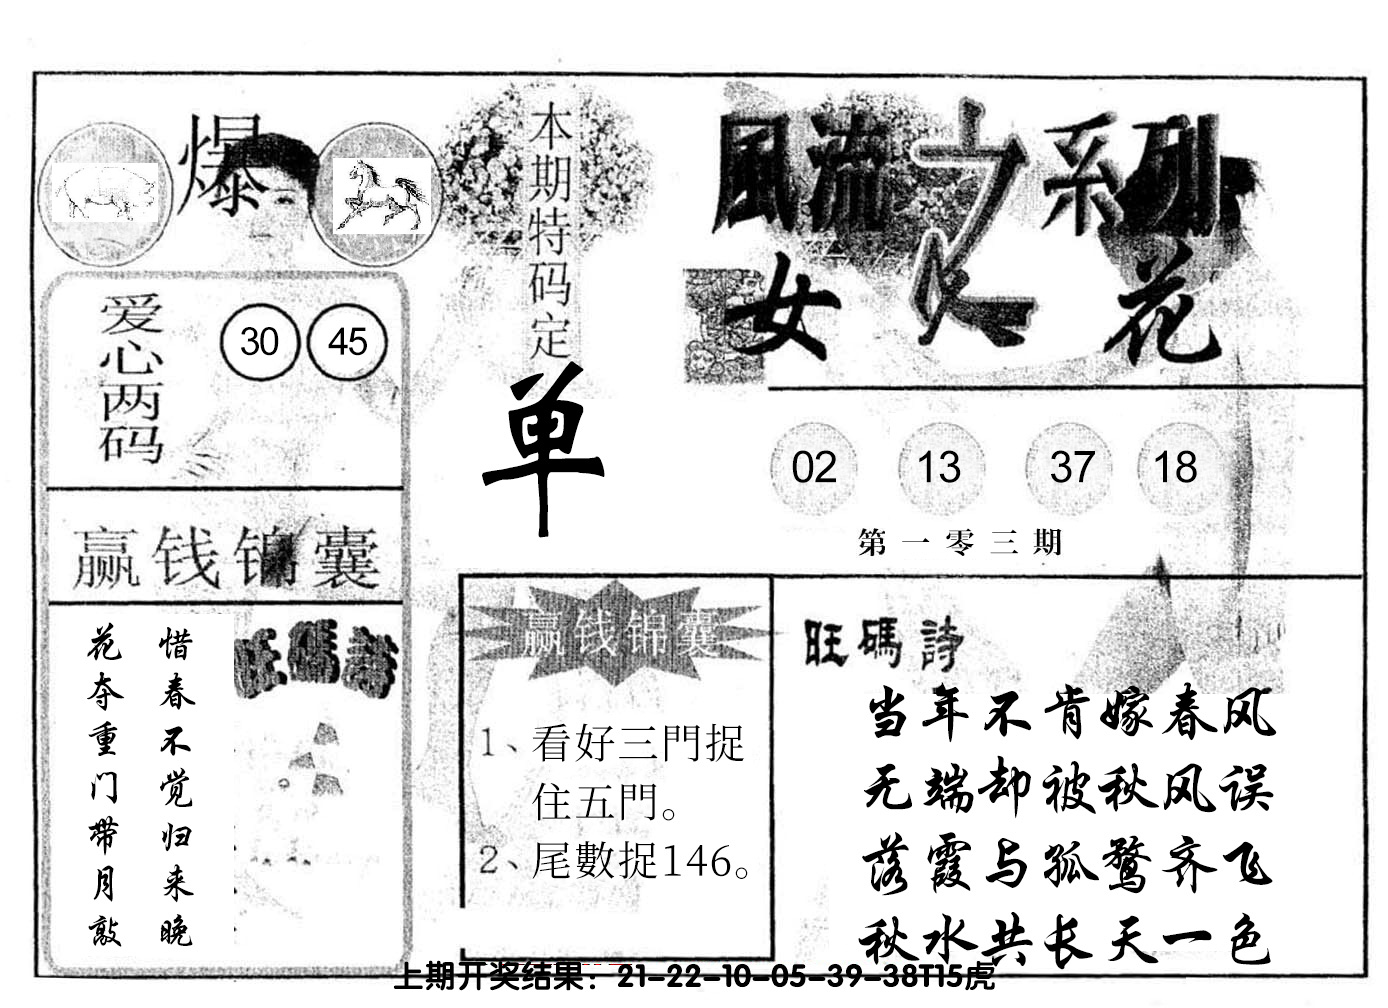 爆
本期特码定
单
風流之系列
女人花
爱心两码
30 45
02 13 37 18
第一零三期
赢钱锦囊
惜春不觉归来晚
花夺重门带月敲
旺碼詩
赢钱锦囊
1、看好三門捉
住五門。
2、尾數捉146。
旺碼詩
当年不肯嫁春风
无端却被秋风误
落霞与孤鹜齐飞
秋水共长天一色
上期开奖结果：21-22-10-05-39-38T15虎